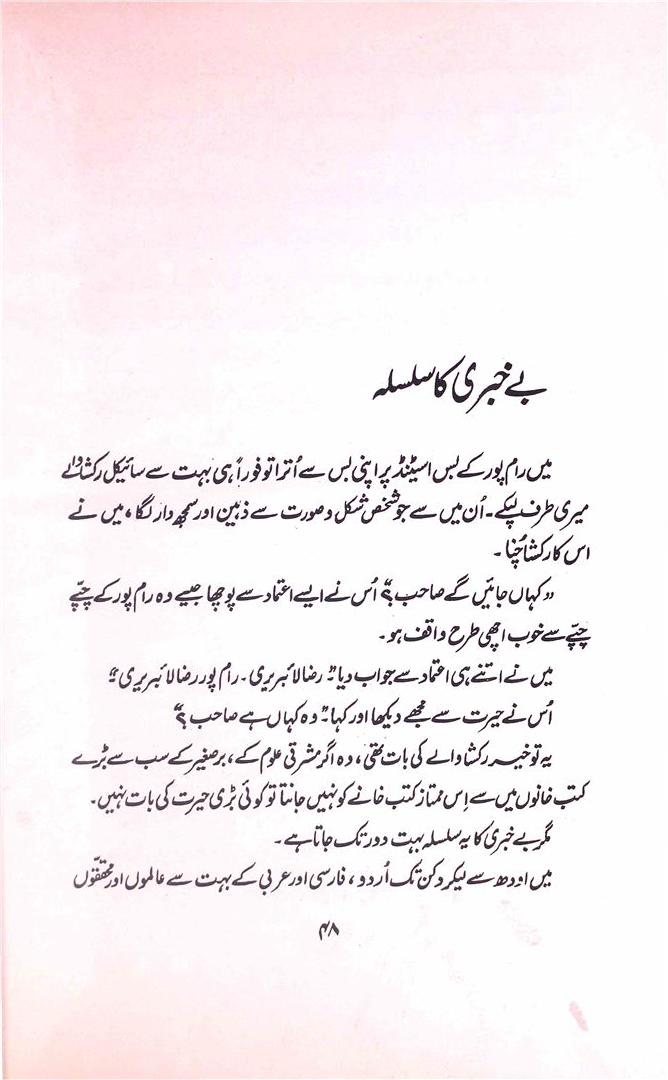 بے خبری کا سلسلہ
میں رام پور کے بس اسٹینڈ پر اپنی بس سے اُترا تو فوراً ہی بہت سے سائیکل رکشا والے
میری طرف لپکے۔ اُن میں سے جو شخص شکل و صورت سے ذہین اور سمجھ دار لگا، میں نے
اس کا رکشا چُنا۔
”کہاں جائیں گے صاحب؟“ اُس نے ایسے اعتماد سے پوچھا جیسے وہ رام پور کے چپّے
چپّے سے خوب اچھی طرح واقف ہو۔
میں نے اتنے ہی اعتماد سے جواب دیا۔ ”رضا لائبریری۔ رام پور رضا لائبریری“
اُس نے حیرت سے مجھے دیکھا اور کہا۔ ”وہ کہاں ہے صاحب؟“
یہ تو خیر رکشا والے کی بات تھی، وہ اگر مشرقی علوم کے، برصغیر کے سب سے بڑے
کتب خانوں میں سے اِس ممتاز کتب خانے کو نہیں جانتا تو کوئی بڑی حیرت کی بات نہیں۔
مگر بے خبری کا یہ سلسلہ بہت دور تک جاتا ہے۔
میں اودھ سے لیکر دکن تک اُردو، فارسی اور عربی کے بہت سے عالموں اور محققّوں
۴۸